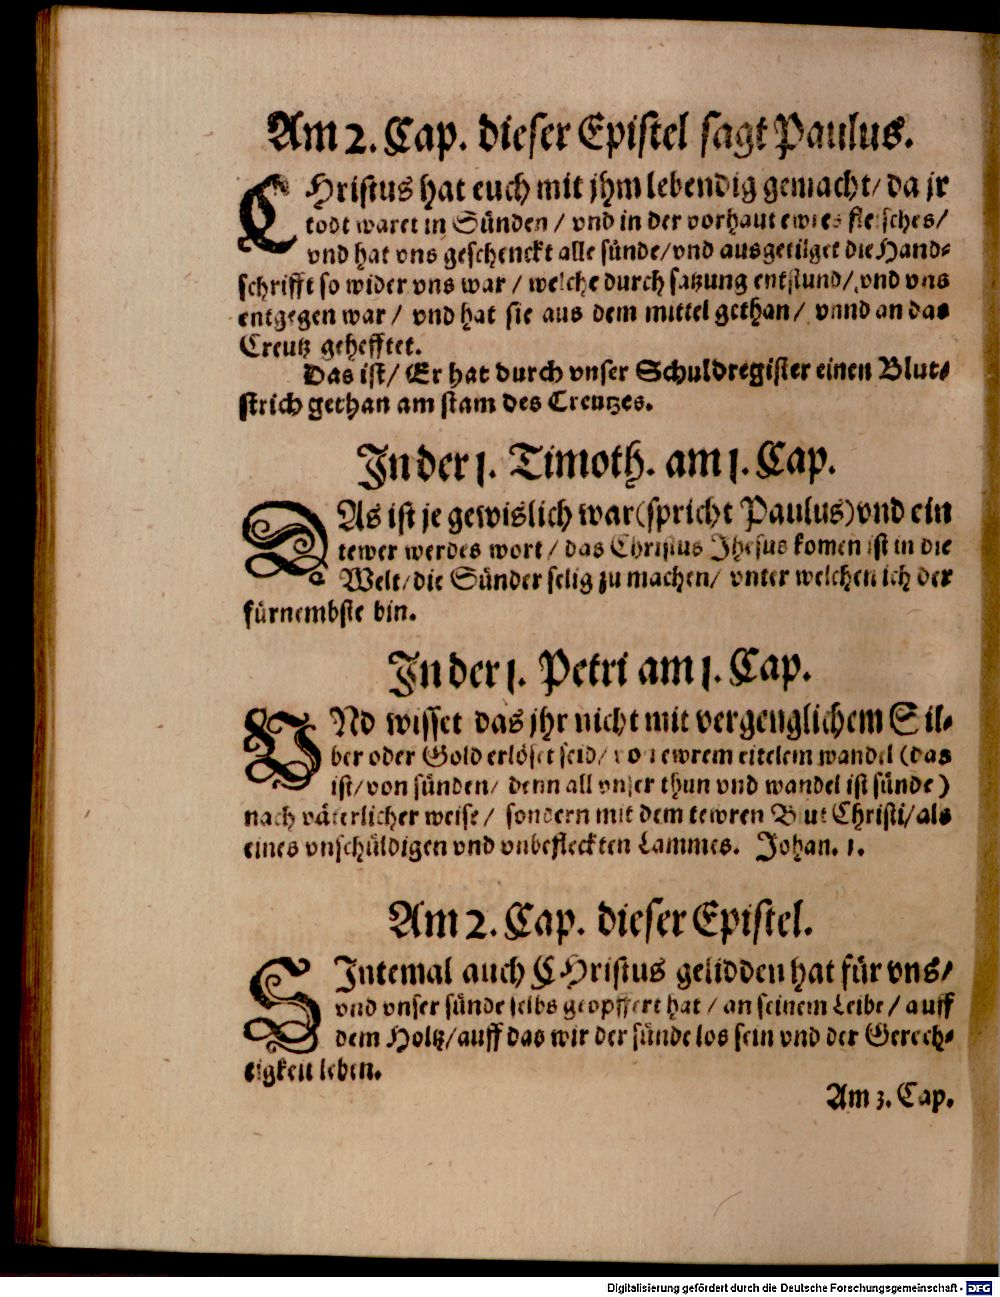 Am 2. Cap. dieser Epistel sagt Paulus.
CHristus hat euch mit jhm lebendig gemacht/ da jr
todt waret in Sünden / vnd in der vorhaut ewres fleisches/
vnd hat vns geschenckt alle sünde/ vnd ausgetilget die Hand-
schrifft so wider vns war / welche durch satzung entstund/ vnd vns
entgegen war / vnd hat sie aus dem mittel gethan/ vnnd an das
Creutz gehefftet.
Das ist/ Er hat durch vnser Schuldregister einen Blut-
strich gethan am stam des Creutzes.
In der 1. Timoth. am 1. Cap.
DAs ist je gewislich war (spricht Paulus) vnd ein
tewer werdes wort / das Christus Jhesus komen ist in die
Welt/ die Sünder selig zu machen/ vnter welchen ich der
fürnembste bin.
In der 1. Petri am 1. Cap.
VNd wisset das jhr nicht mit vergenglichem Sil-
ber oder Gold erlöset seid/ von ewrem eitelem wandel (das
ist/ von sünden/ denn all vnser thun vnd wandel ist sünde)
nach väterlicher weise / sondern mit dem tewren Blut Christi/ als
eines vnschüldigen vnd vnbefleckten Lammes. Johan. 1.
Am 2. Cap. dieser Epistel.
SIntemal auch CHristus gelidden hat für vns/
vnd vnser sünde selbs geopffert hat / an seinem Leibe / auff
dem Holtz/ auff das wir der sünde los sein vnd der Gerech-
tigkeit leben.
Am 3. Cap.
Digitalisierung gefördert durch die Deutsche Forschungsgemeinschaft - DFG